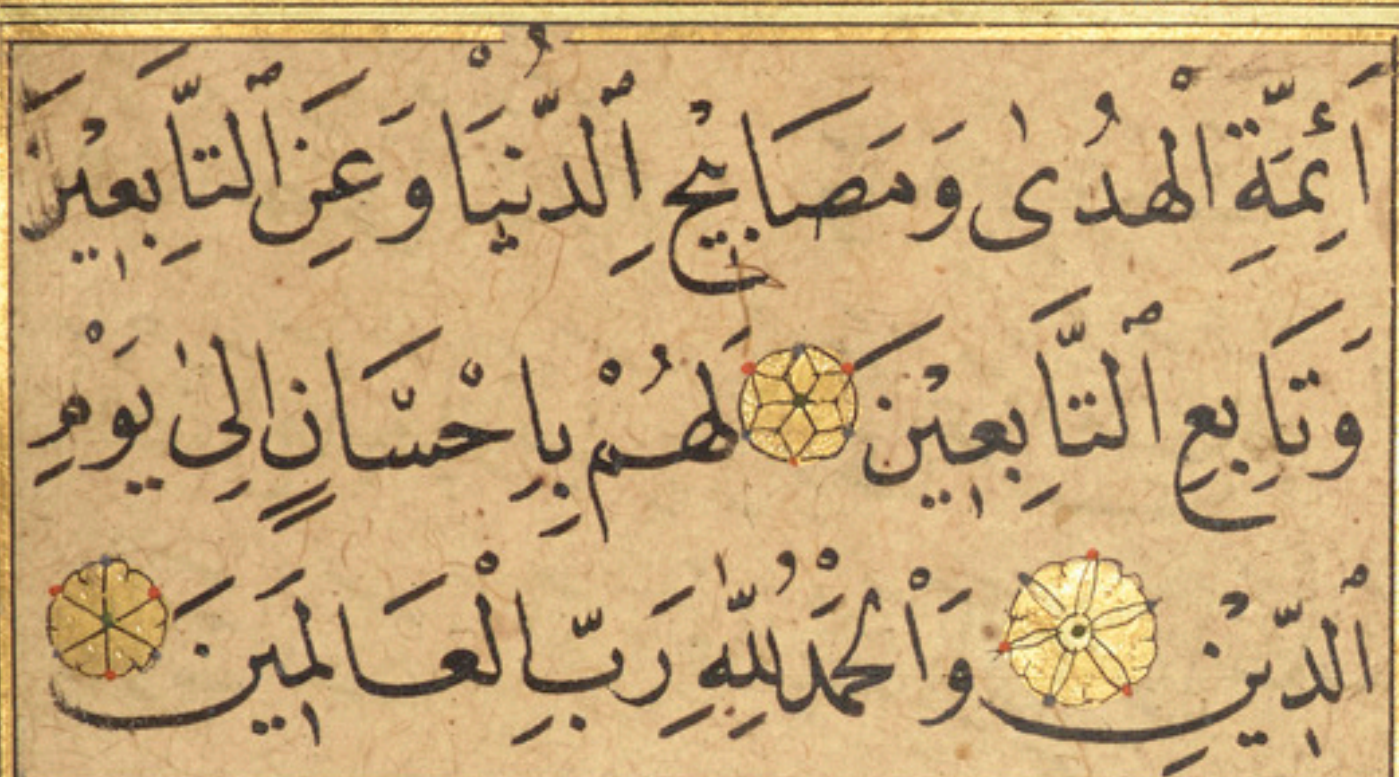 أَئِمَّةِ الْهُدٰى وَمَصَابِيْحِ ٱلدُّنْيَا وَعَنِ ٱلتَّابِعِيْنَ
وَتَابِعِ ٱلتَّابِعِيْنَ لَهُمْ بِاِحْسَانٍ اِلٰى يَوْمِ
ٱلدِّيْنِ وَاْلحَمْدُ لِلّٰهِ رَبِّ الْعَالَمِينَ